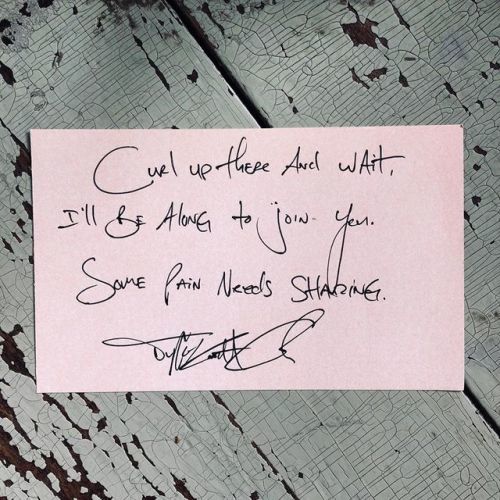 Curl up there And wAit,
I'll BE Along to join you.
Some PAin Needs SHARING.